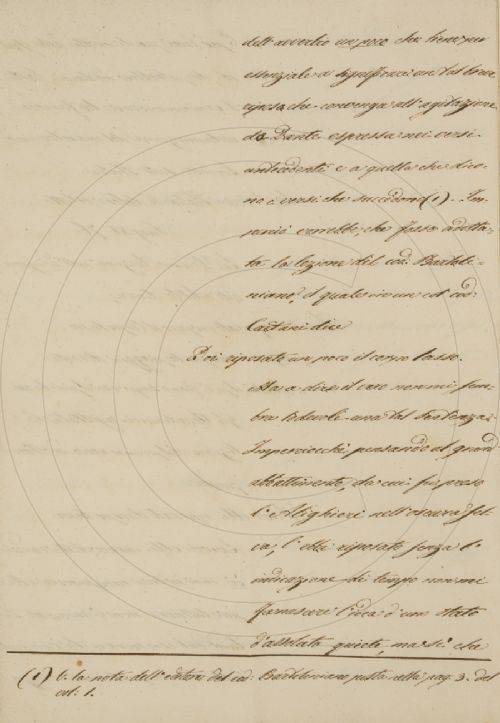 dell'avverbio un poco che hene per
essenziale a significarci un tal breve
riposo che convenga all'agitazione
di Dante espressa nei versi
antecedenti e a quella che dico-
no i versi che succedono (1). Im-
perciò vorrebbe, che fosse adotta-
ta la lezione del cod: Bartoli-
niano, il quale in un col cod:
Caetani dice
Poi riposato un poco il corpo lasso.
Ma a dire il vero non mi sem-
bra lodevole una tal sentenza.
Imperciocchè pensando al grand'
abbattimento, da cui fu preso
l'Alighieri nell'oscura sel-
va, l'ebbi riposato senza l'
indicazione di tempo non mi
fa nascere l'idea d'uno stato
d'assoluta quiete, ma sì che
(1) V. la nota dell'editore del cod: Bartoliniano posta nella pag. 3. del
vol: 1.